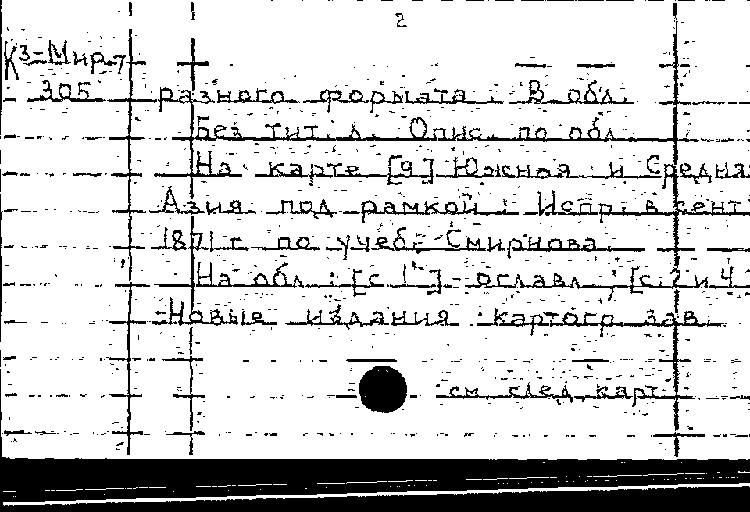 2
К3-Мир-7
305 разного формата. В обл.
Без тит. л. Опис. по обл.
На карте [9] Южная и Средняя
Азия под рамкой: Испр. в сент
1871 г. по учеб. Смирнова.
На обл.: [с. 1] - оглавл.; [с. 2 и 4
-Новые издания картогр. зав.
см. след. карт.